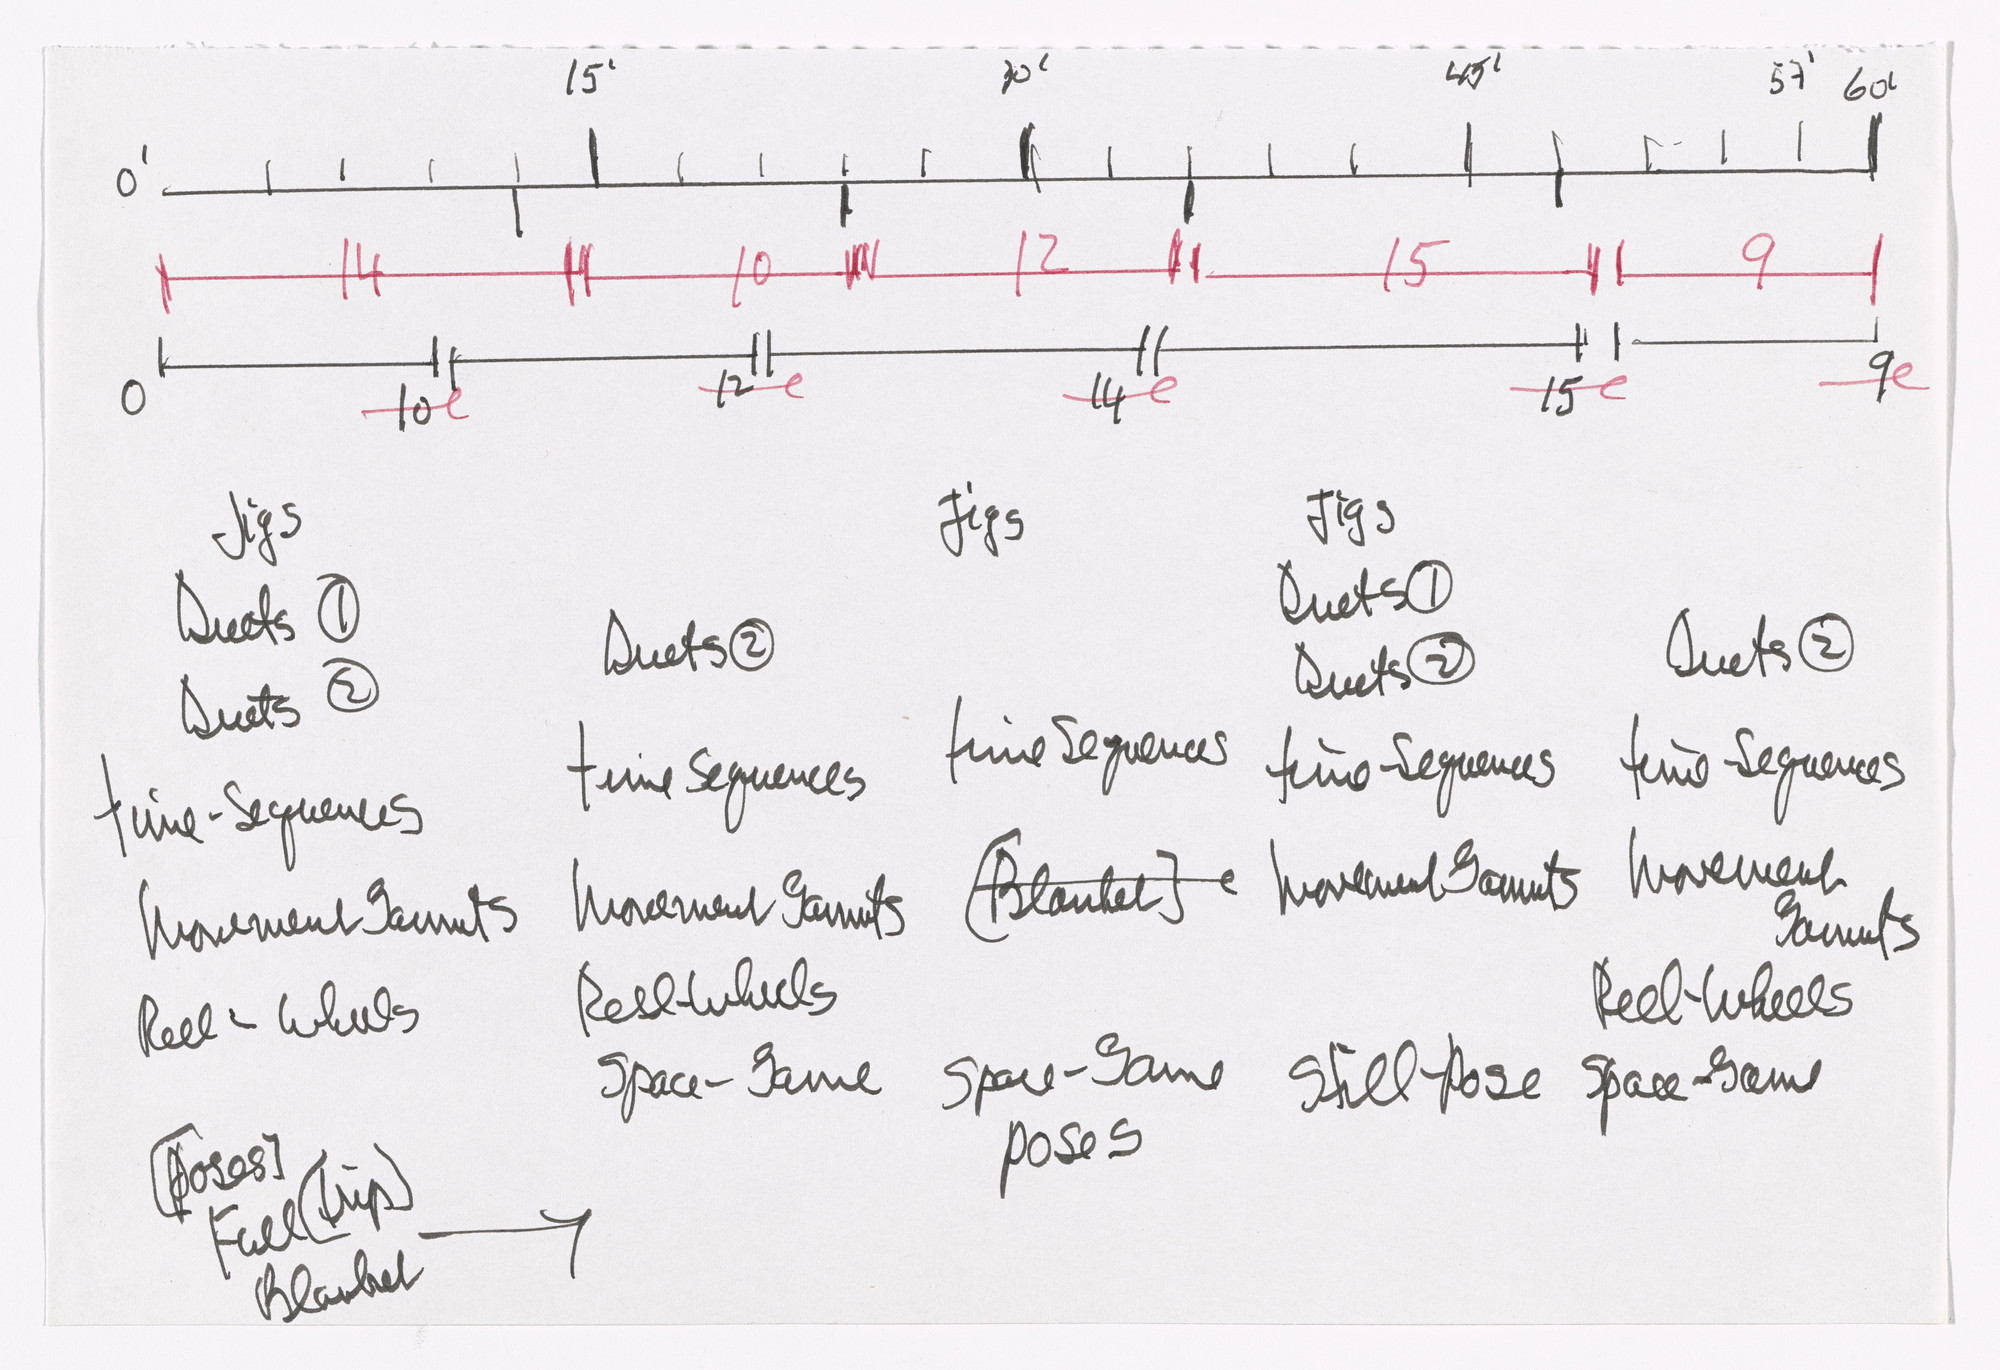 15' 30' 45' 57' 60'
0'
14 10 12 15 9
0 10 12 14 15 9
Jigs
Duets ①
Duets ②
time-Sequences
Movement Gamuts
Reel-Wheels
[Poses]
Fall (trip)
Blanket
Duets ②
time Sequences
Movement Gamuts
Reel-Wheels
Space-Game
Jigs
time Sequences
[Blanket]
Space-Game
poses
Jigs
Duets ①
Duets ②
time-Sequences
Movement Gamuts
Still-Pose
Duets ②
time-Sequences
Movement
Gamuts
Reel-Wheels
Space-Game